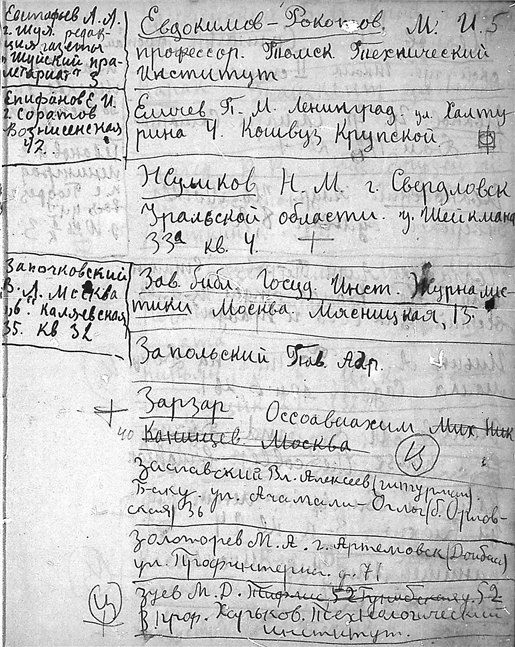 Евстафьев Л. Л.
г. Шуя. редак-
ция газеты
"Шуйский про-
летариат" 3
Евдокимов-Рокотов, М. И. 5
профессор. Томск Технический
Институт
Епифанов Е. И.
г. Саратов
Вознесенская
42.
П. М. Ленинград ул. Халту-
рина 4. Комвуз Крупской
Жуликов Н. М. г. Свердловск
Уральской области. у. Шейкмана
33а кв. 4.
Заночковский
В. Л. Москва
Каляевская
35. кв 32
Зав. библ. Госуд. Инст. Журналис-
тики Москва, Мясницкая, 13.
Запольский Пав. Адр.
Зарзар Оссоавиахим Мих. Ник
40 Канищев Москва
Заславский Вл. Алексеев
Баку. ул. Ачамали-Оглы (б. Орлов-
ская) 36
Золоторев М. А. г. Артемовск (Донбас)
ул. Профинтерна. д. 71
Зуев М. D. 52
Проф. Харьков. Технологический
институт.